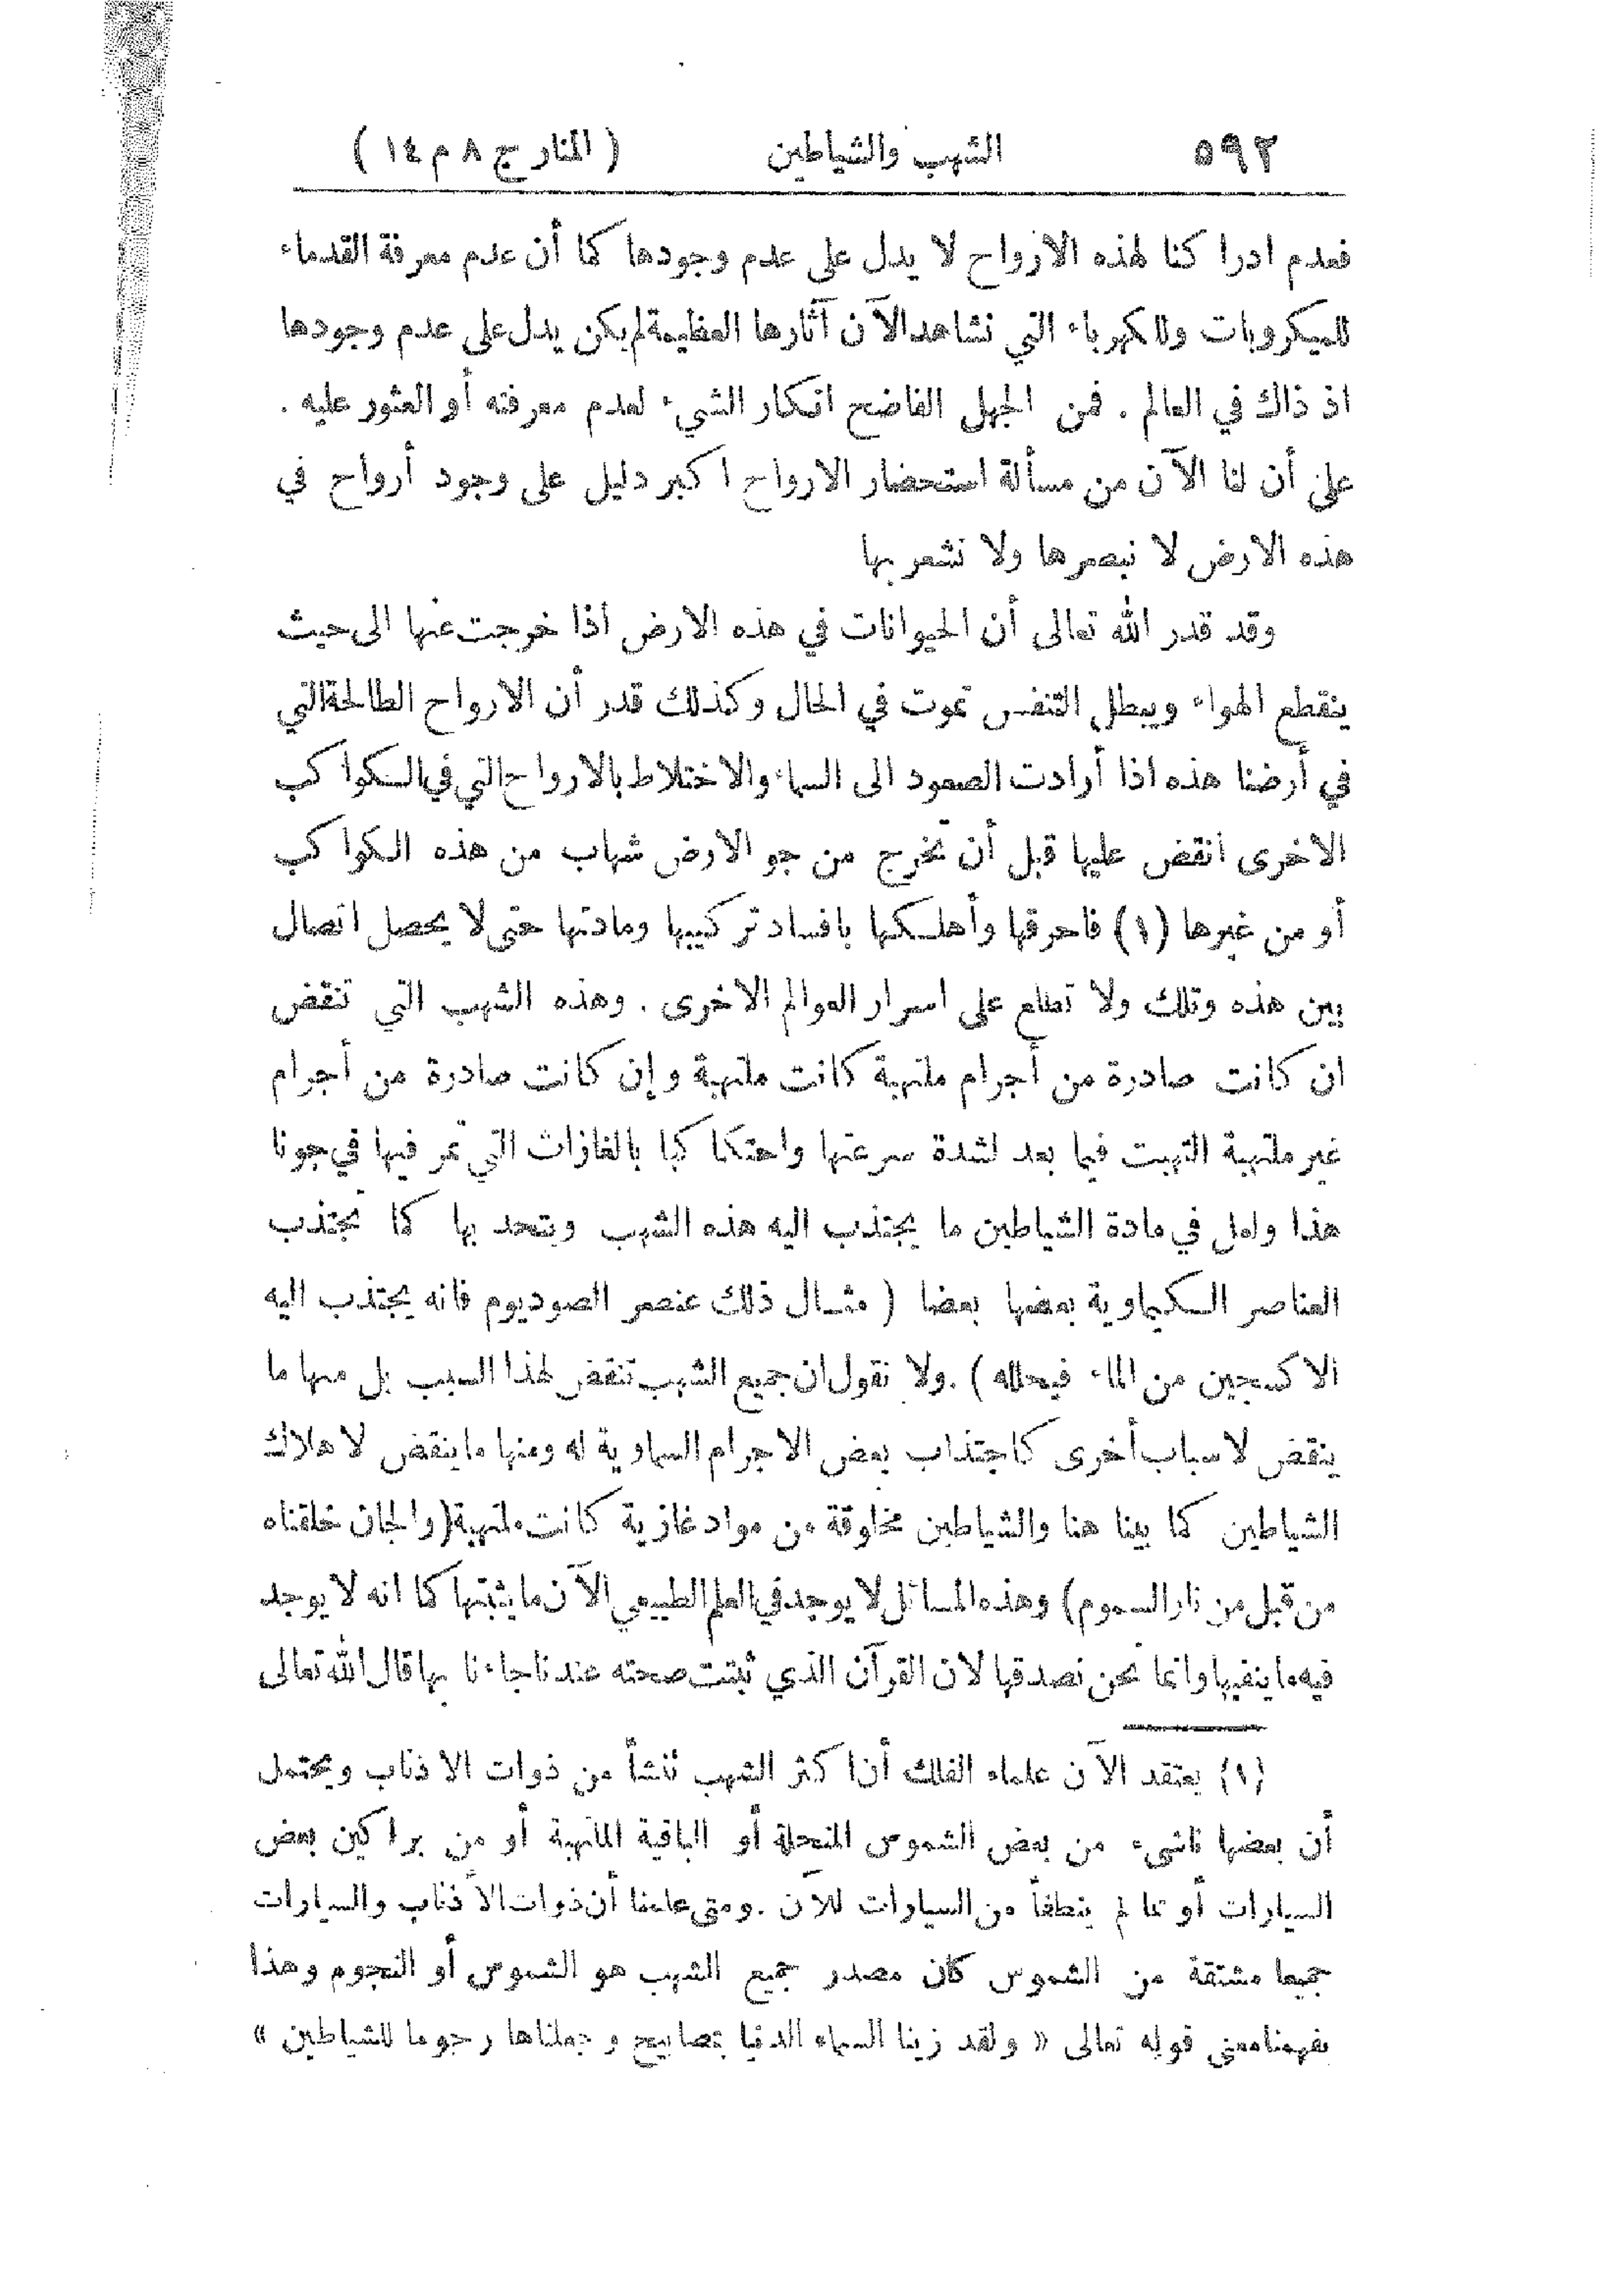 ٥٩٢ الشهب والشياطين ( المنار ج ٨ م ١٤ )
فعدم ادراكنا لهذه الارواح لا يدل على عدم وجودها كما أن عدم معرفة القدماء
للميكروبات وللكهرباء التي نشاهد الآن آثارها العظيمة لم يكن يدل على عدم وجودها
اذ ذاك في العالم . فمن الجهل الفاضح انكار الشيء لعدم معرفته أو العثور عليه .
على أن لنا الآن من مسألة استحضار الارواح اكبر دليل على وجود أرواح في
هذه الارض لا نبصرها ولا نشعر بها
وقد قدر الله تعالى أن الحيوانات في هذه الارض اذا خرجت عنها الى حيث
ينقطع الهواء ويبطل التنفس تموت في الحال وكذلك قدر أن الارواح الطالحة التي
في أرضنا هذه اذا أرادت الصعود الى السماء والاختلاط بالارواح التي في الكواكب
الاخرى انقض عليها قبل أن تخرج من جو الارض شهاب من هذه الكواكب
أو من غيرها (١) فاحرقها وأهلكها بافساد تركيبها ومادتها حتى لا يحصل اتصال
بين هذه وتلك ولا تطلع على اسرار العوالم الاخرى . وهذه الشهب التي تنقض
ان كانت صادرة من أجرام ملتهبة كانت ملتهبة وإن كانت صادرة من أجرام
غير ملتهبة التهبت فيما بعد لشدة سرعتها واحتكاكها بالغازات التي تمر فيها في جونا
هذا ولعل في مادة الشياطين ما يجتذب اليه هذه الشهب ويتحد بها كما تجتذب
العناصر الكيماوية بعضها بعضا ( مثال ذلك عنصر الصوديوم فانه يجتذب اليه
الاكسجين من الماء فيحلله ) . ولا نقول ان جميع الشهب تنقض لهذا السبب بل منها ما
ينقض لاسباب أخرى كاجتذاب بعض الاجرام السماوية له ومنها ما ينقض لاهلاك
الشياطين كما بينا هنا والشياطين مخلوقة من مواد غازية كانت ملتهبة (والجان خلقناه
من قبل من نار السموم) وهذه المسائل لا يوجد في العلم الطبيعي الآن ما يثبتها كما انه لا يوجد
فيه ما ينفيها وانما نحن نصدقها لان القرآن الذي ثبتت صحته عندنا جاءنا بها قال الله تعالى
(١) يعتقد الآن علماء الفلك أن اكثر الشهب تنشأ من ذوات الاذناب ويحتمل
أن بعضها ناشيء من بعض الشموس المنحلة أو الباقية الملتهبة أو من براكين بعض
السيارات أو مما لم ينطفأ من السيارات للآن . ومتى علمنا أن ذوات الأذناب والسيارات
جميعا مشتقة من الشموس كان مصدر جميع الشهب هو الشموس أو النجوم وهذا
يفهمنا معنى قوله تعالى « ولقد زينا السماء الدنيا بمصابيح وجعلناها رجوما للشياطين »